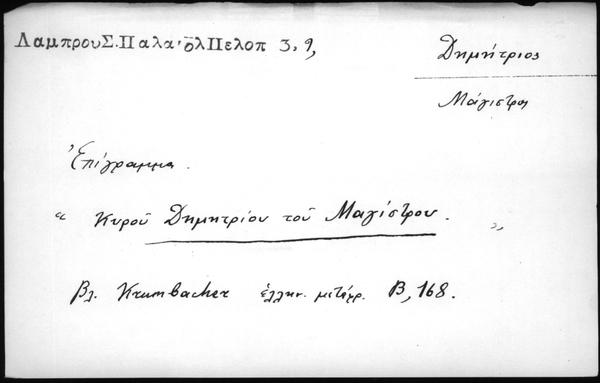 Λαμπρου Σ. Παλα'ολ Πελοπ 3, 9,
Δημήτριος
Μάγιστρος
Ἐπίγραμμα.
"Κυροῦ Δημητρίου τοῦ Μαγίστρου. "
βλ. Krumbacher ἑλλην. μετάφρ. Β, 168.